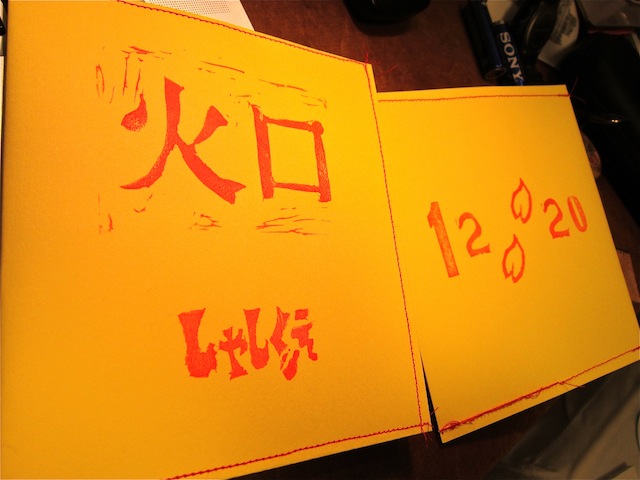 火口
しゃしくえ
12 20
SONY